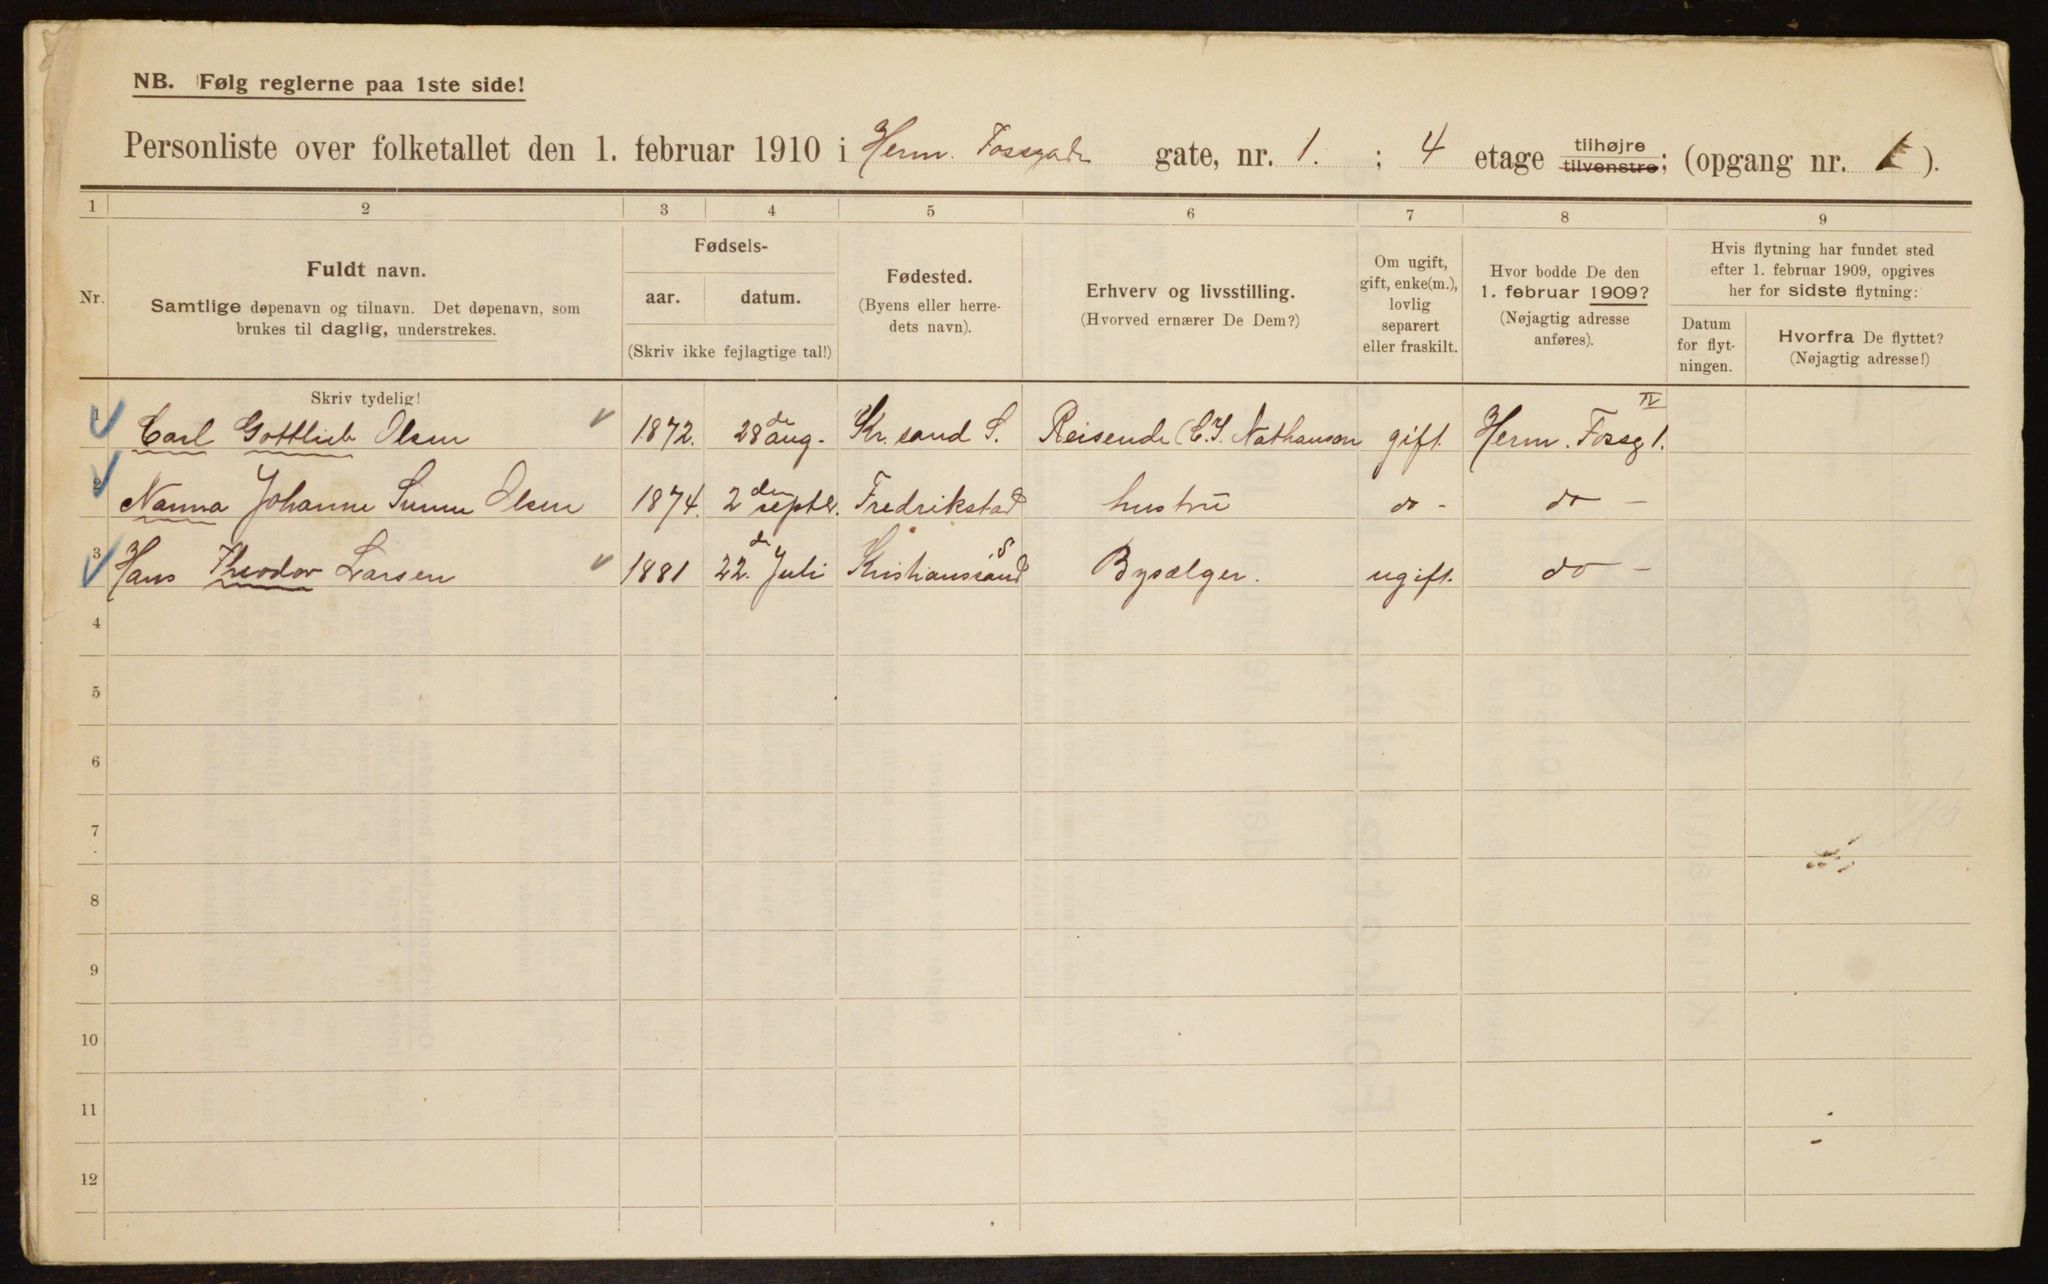 NB. Følg reglerne paa 1ste side!
Personliste over folketallet den 1. februar 1910 i Herm. Fossgade gate, nr. 1. ; 4 etage tilhøjre tilvenstre; (opgang nr. 1).
1 2 3 4 5 6 7 8 9
Nr.
Fuldt navn.
Samtlige døpenavn og tilnavn. Det døpenavn, som
brukes til daglig, understrekes.
Skriv tydelig!
Fødsels-
aar. datum.
(Skriv ikke fejlagtige tal!)
Fødested.
(Byens eller herre-
dets navn).
Erhverv og livsstilling.
(Hvorved ernærer De Dem?)
Om ugift,
gift, enke(m.),
lovlig
separert
eller fraskilt.
Hvor bodde De den
1. februar 1909?
(Nøjagtig adresse
anføres).
Hvis flytning har fundet sted
efter 1. februar 1909, opgives
her for sidste flytning:
Datum
for flyt-
ningen.
Hvorfra De flyttet?
(Nøjagtig adresse!)
1 Carl Gottlieb Olsen 1872. 28 de aug. Kr. sand S. Reisende (C. I. Nathanson gift. Herm. Fossg 1. IV
2 Nanna Johanne Olsen 1874. 2 den septbr. Fredrikstad hustru do - do -
3 Hans Theodor Larsen 1881 22. de Juli Kristianssand S Bysælger. ugift. do -
4
5
6
7
8
9
10
11
12